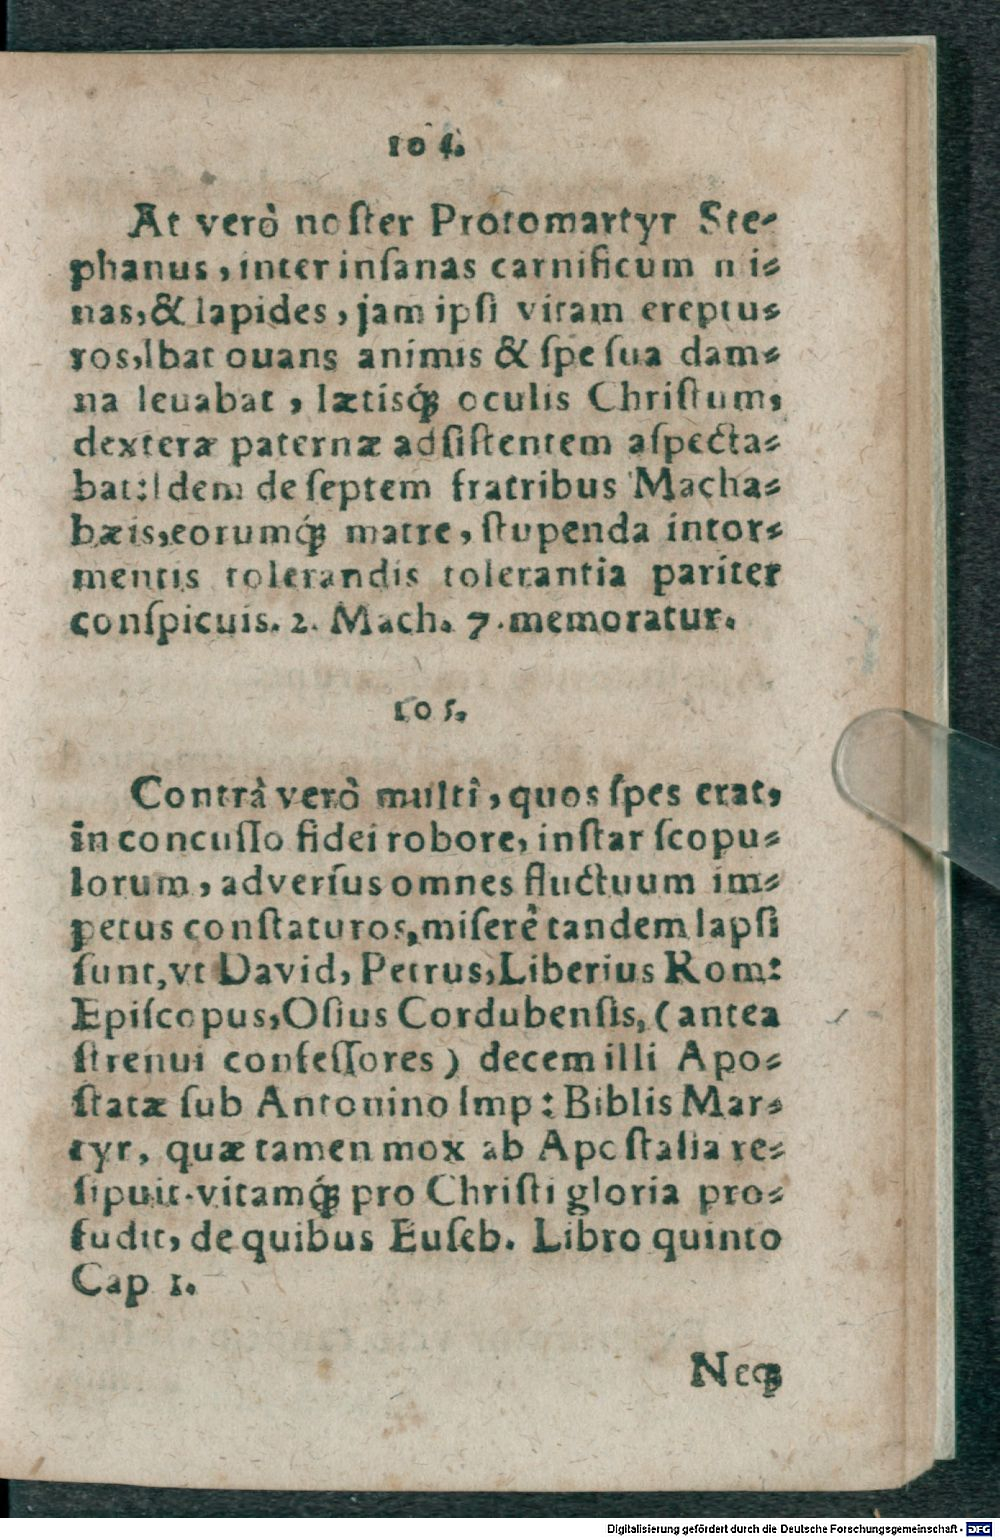 104.
At verò noſter Protomartyr Ste-
phanus, inter inſanas carnificum mi-
nas, & lapides, jam ipſi vitam ereptu-
ros, Ibat ouans animis & ſpe ſua dam-
na leuabat, lætisq́; oculis Chriſtum,
dexteræ paternæ adſiſtentem aſpecta-
bat: Idem de ſeptem fratribus Macha-
bæis, eorumq́; matre, ſtupenda in tor-
mentis tolerandis tolerantia pariter
conſpicuis. 2. Mach. 7. memoratur.
105.
Contrà verò multi, quos ſpes erat,
in concuſſo fidei robore, inſtar ſcopu-
lorum, adverſus omnes fluctuum im-
petus conſtaturos, miſerè tandem lapſi
ſunt, vt David, Petrus, Liberius Rom:
Epiſcopus, Oſius Cordubenſis, (antea
ſtrenui confeſſores) decem illi Apo-
ſtatæ ſub Antonino Imp: Biblis Mar-
tyr, quæ tamen mox ab Apoſtaſia re-
ſipuit. vitamq́; pro Chriſti gloria pro-
fudit, de quibus Euſeb. Libro quinto
Cap 1.
Neq;
Digitalisierung gefördert durch die Deutsche Forschungsgemeinschaft - DFG